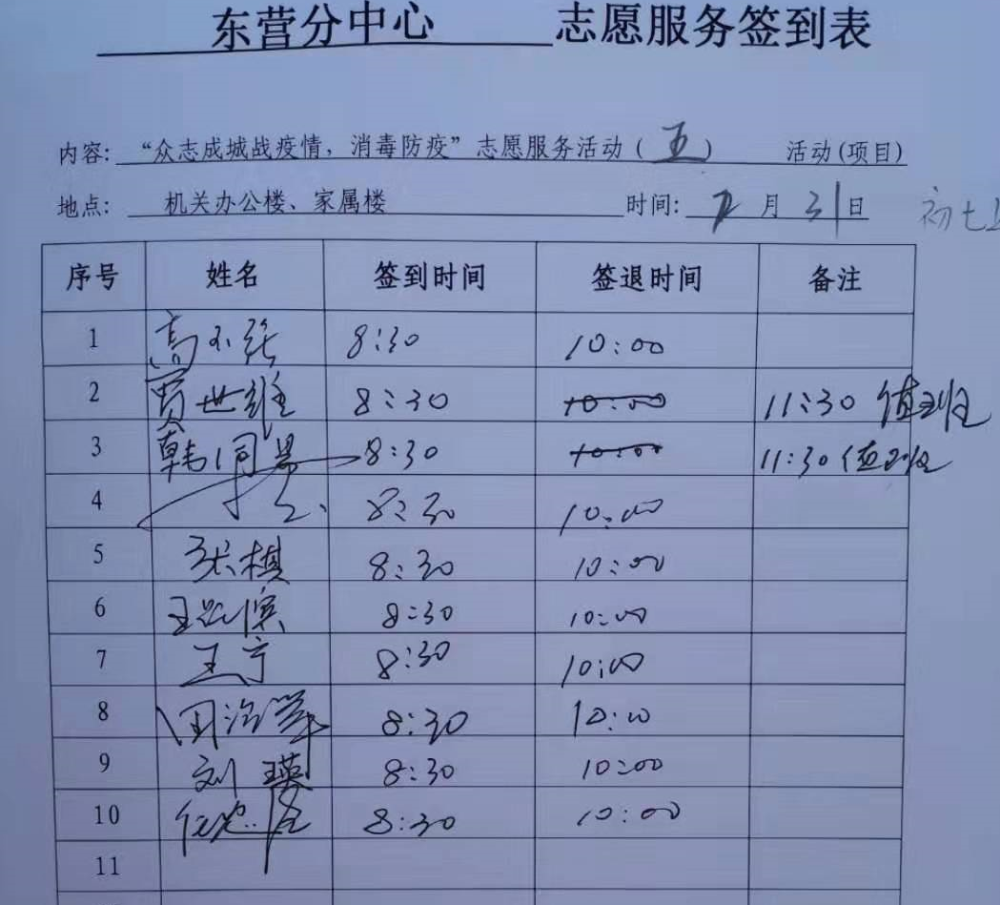 东营分中心 志愿服务签到表
内容: “众志成城战疫情，消毒防疫”志愿服务活动(五) 活动(项目)
地点: 机关办公楼、家属楼 时间: 月31日 初七
序号 姓名 签到时间 签退时间 备注
1 高小强 8:30 10:00
2 贾世维 8:30 10:00 11:30 值班
3 韩同 8:30 10:00 11:30 值班
4 8:30 10:00
5 张棋 8:30 10:00
6 王 滨 8:30 10:00
7 王宁 8:30 10:00
8 周治军 8:30 10:00
9 刘瑛 8:30 10:00
10 任 8:30 10:00
11